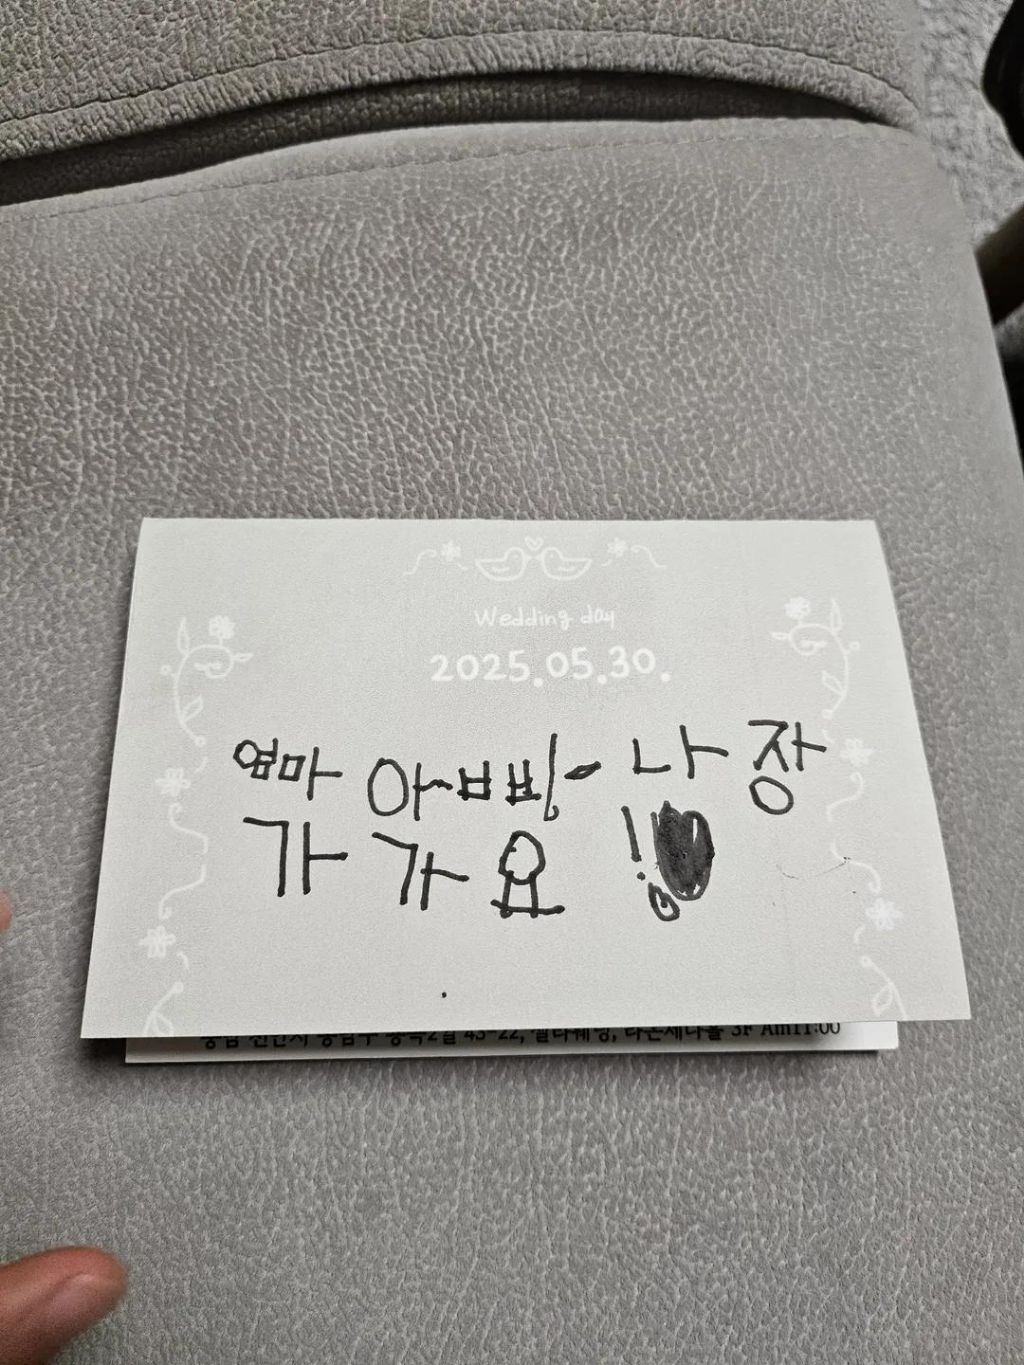 Wedding day
2025.05.30.
엄마 아빠 나 장
가 가 요 !
3F Am11:00